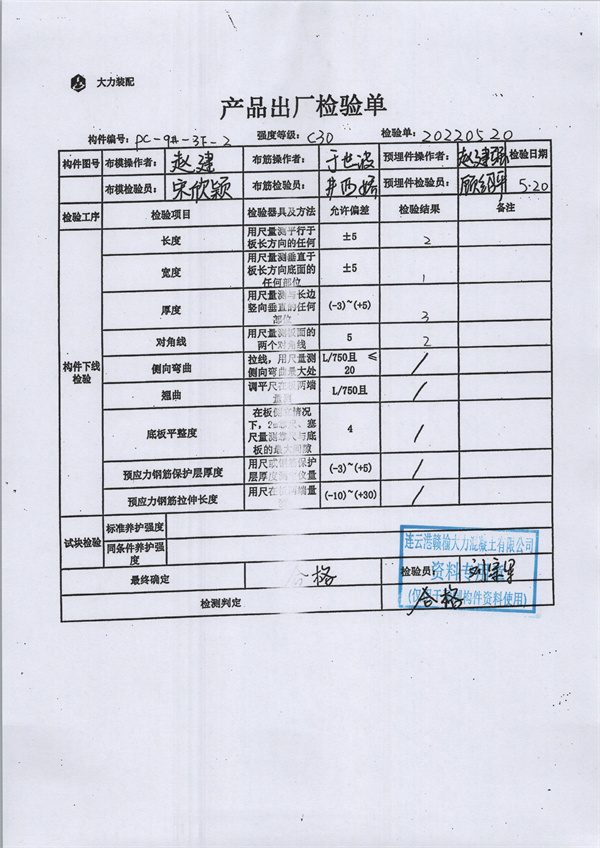 大力装配
产品出厂检验单
构件编号: PC-9#-3F-2 强度等级: C30 检验单: 20220520
构件图号 布模操作者: 赵建 布筋操作者: 于世波 预埋件操作者: 赵建强 检验日期
布模检验员: 宋欣颖 布筋检验员: 预埋件检验员: 5.20
检验工序 检验项目 检验器具及方法 允许偏差 检验结果 备注
构件下线检验
长度 用尺量测平行于板长方向的任何 ±5 2
宽度 用尺量测垂直于板长方向底面的任何部位 ±5 1
厚度 用尺量测与长边竖向垂直的任何部位 (-3)~(+5) 3
对角线 用尺量测板面的两个对角线 5 2
侧向弯曲 拉线，用尺量测侧向弯曲最大处 L/750且 ≤20 /
翘曲 调平尺在板两端量测 L/750且 /
底板平整度 在板侧立情况下，2m靠尺、塞尺量测靠尺与底板的最大间隙 4 /
预应力钢筋保护层厚度 用尺或钢筋保护层厚度测定仪量 (-3)~(+5) /
预应力钢筋拉伸长度 用尺在板两端量 (-10)~(+30) /
试块检验 标准养护强度
同条件养护强度
最终确定 合格 检验员:
检测判定 合格
连云港赣榆大力混凝土有限公司
资料专用章
构件资料使用)